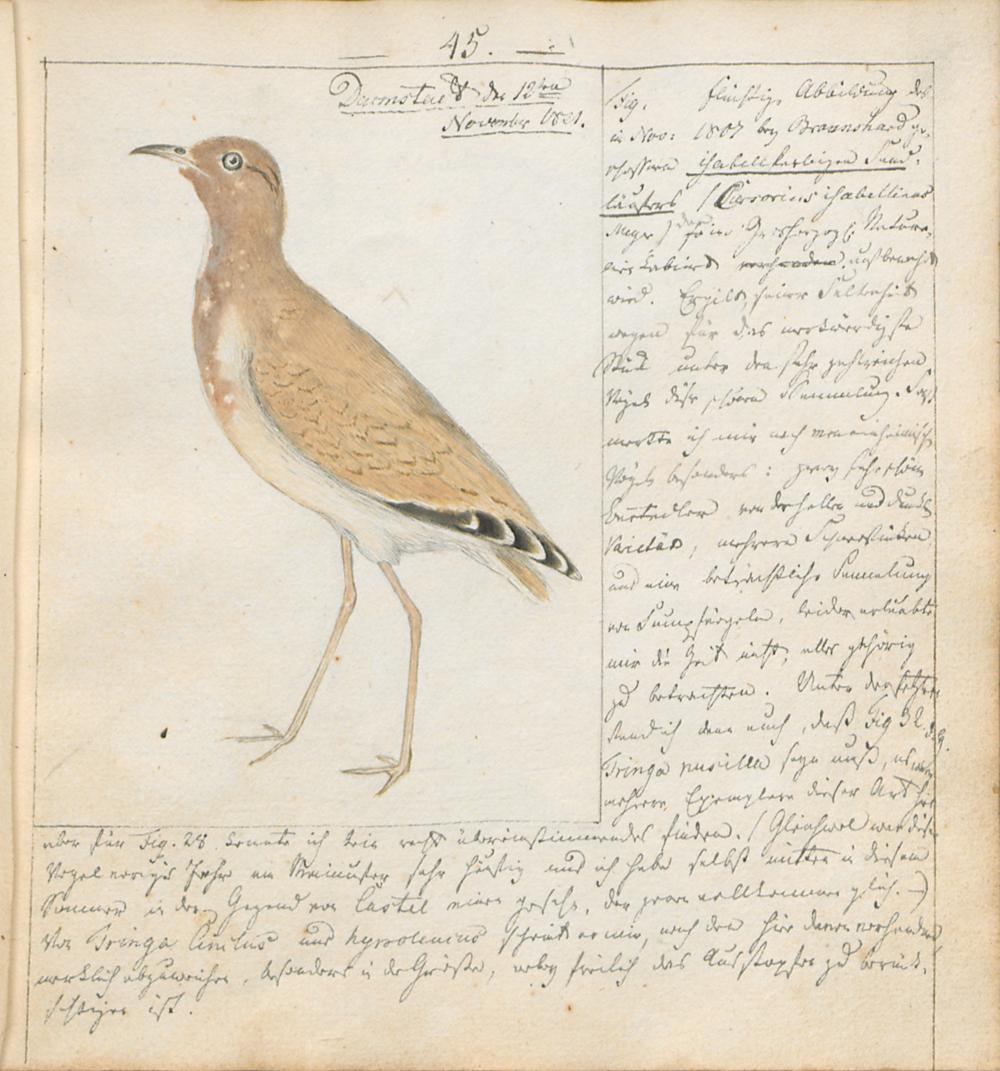 45.
Darmstadt den 12ten
November 1821.
Fig. flüchtige Abbildung des
in Nov: 1807 bey Braunshard ge-
schossenen isabellfarbigen Sand-
läufers (Cursorius isabellinus
Meyer) der im Grosherzogl: Natura-
lien Kabinet vorhanden aufbewahrt
wird. Er gilt seiner Seltenheit
wegen für das merkwürdigste
Stück unter den sehr zahlreichen
Vögeln dieser schönen Sammlung. So
merkte ich mir noch von einheimisch
Vögeln besonders: zwey sehr schöne
von der hellen und dunkl
Varietät, mehrere Schneefinken
und eine beträchtliche Sammlung
von Sumpfvögeln, leider erlaubte
mir die Zeit nicht, alles gehörig
zu betrachten. Unter den letztern
fand ich denn auch, daß Fig 32.
Tringa pusilla seyn muß, es waren
mehrere Exemplare dieser Art hier
aber für Fig. 28 konnte ich kein recht übereinstimmendes finden. (Gleichwol war dieser
Vogel voriges Jahr am sehr häufig und ich habe selbst mitten in diesem
Sommer in der Gegend von Castel einen gesehn, der jenen vollkommen glich. —)
Von Tringa Cinclus und hypoleucus scheint er mir, nach den hier davon vorhandnen
merklich abzuweichen, besonders in der Größe, wobey freilich das Ausstopfen zu berück-
sichtigen ist.